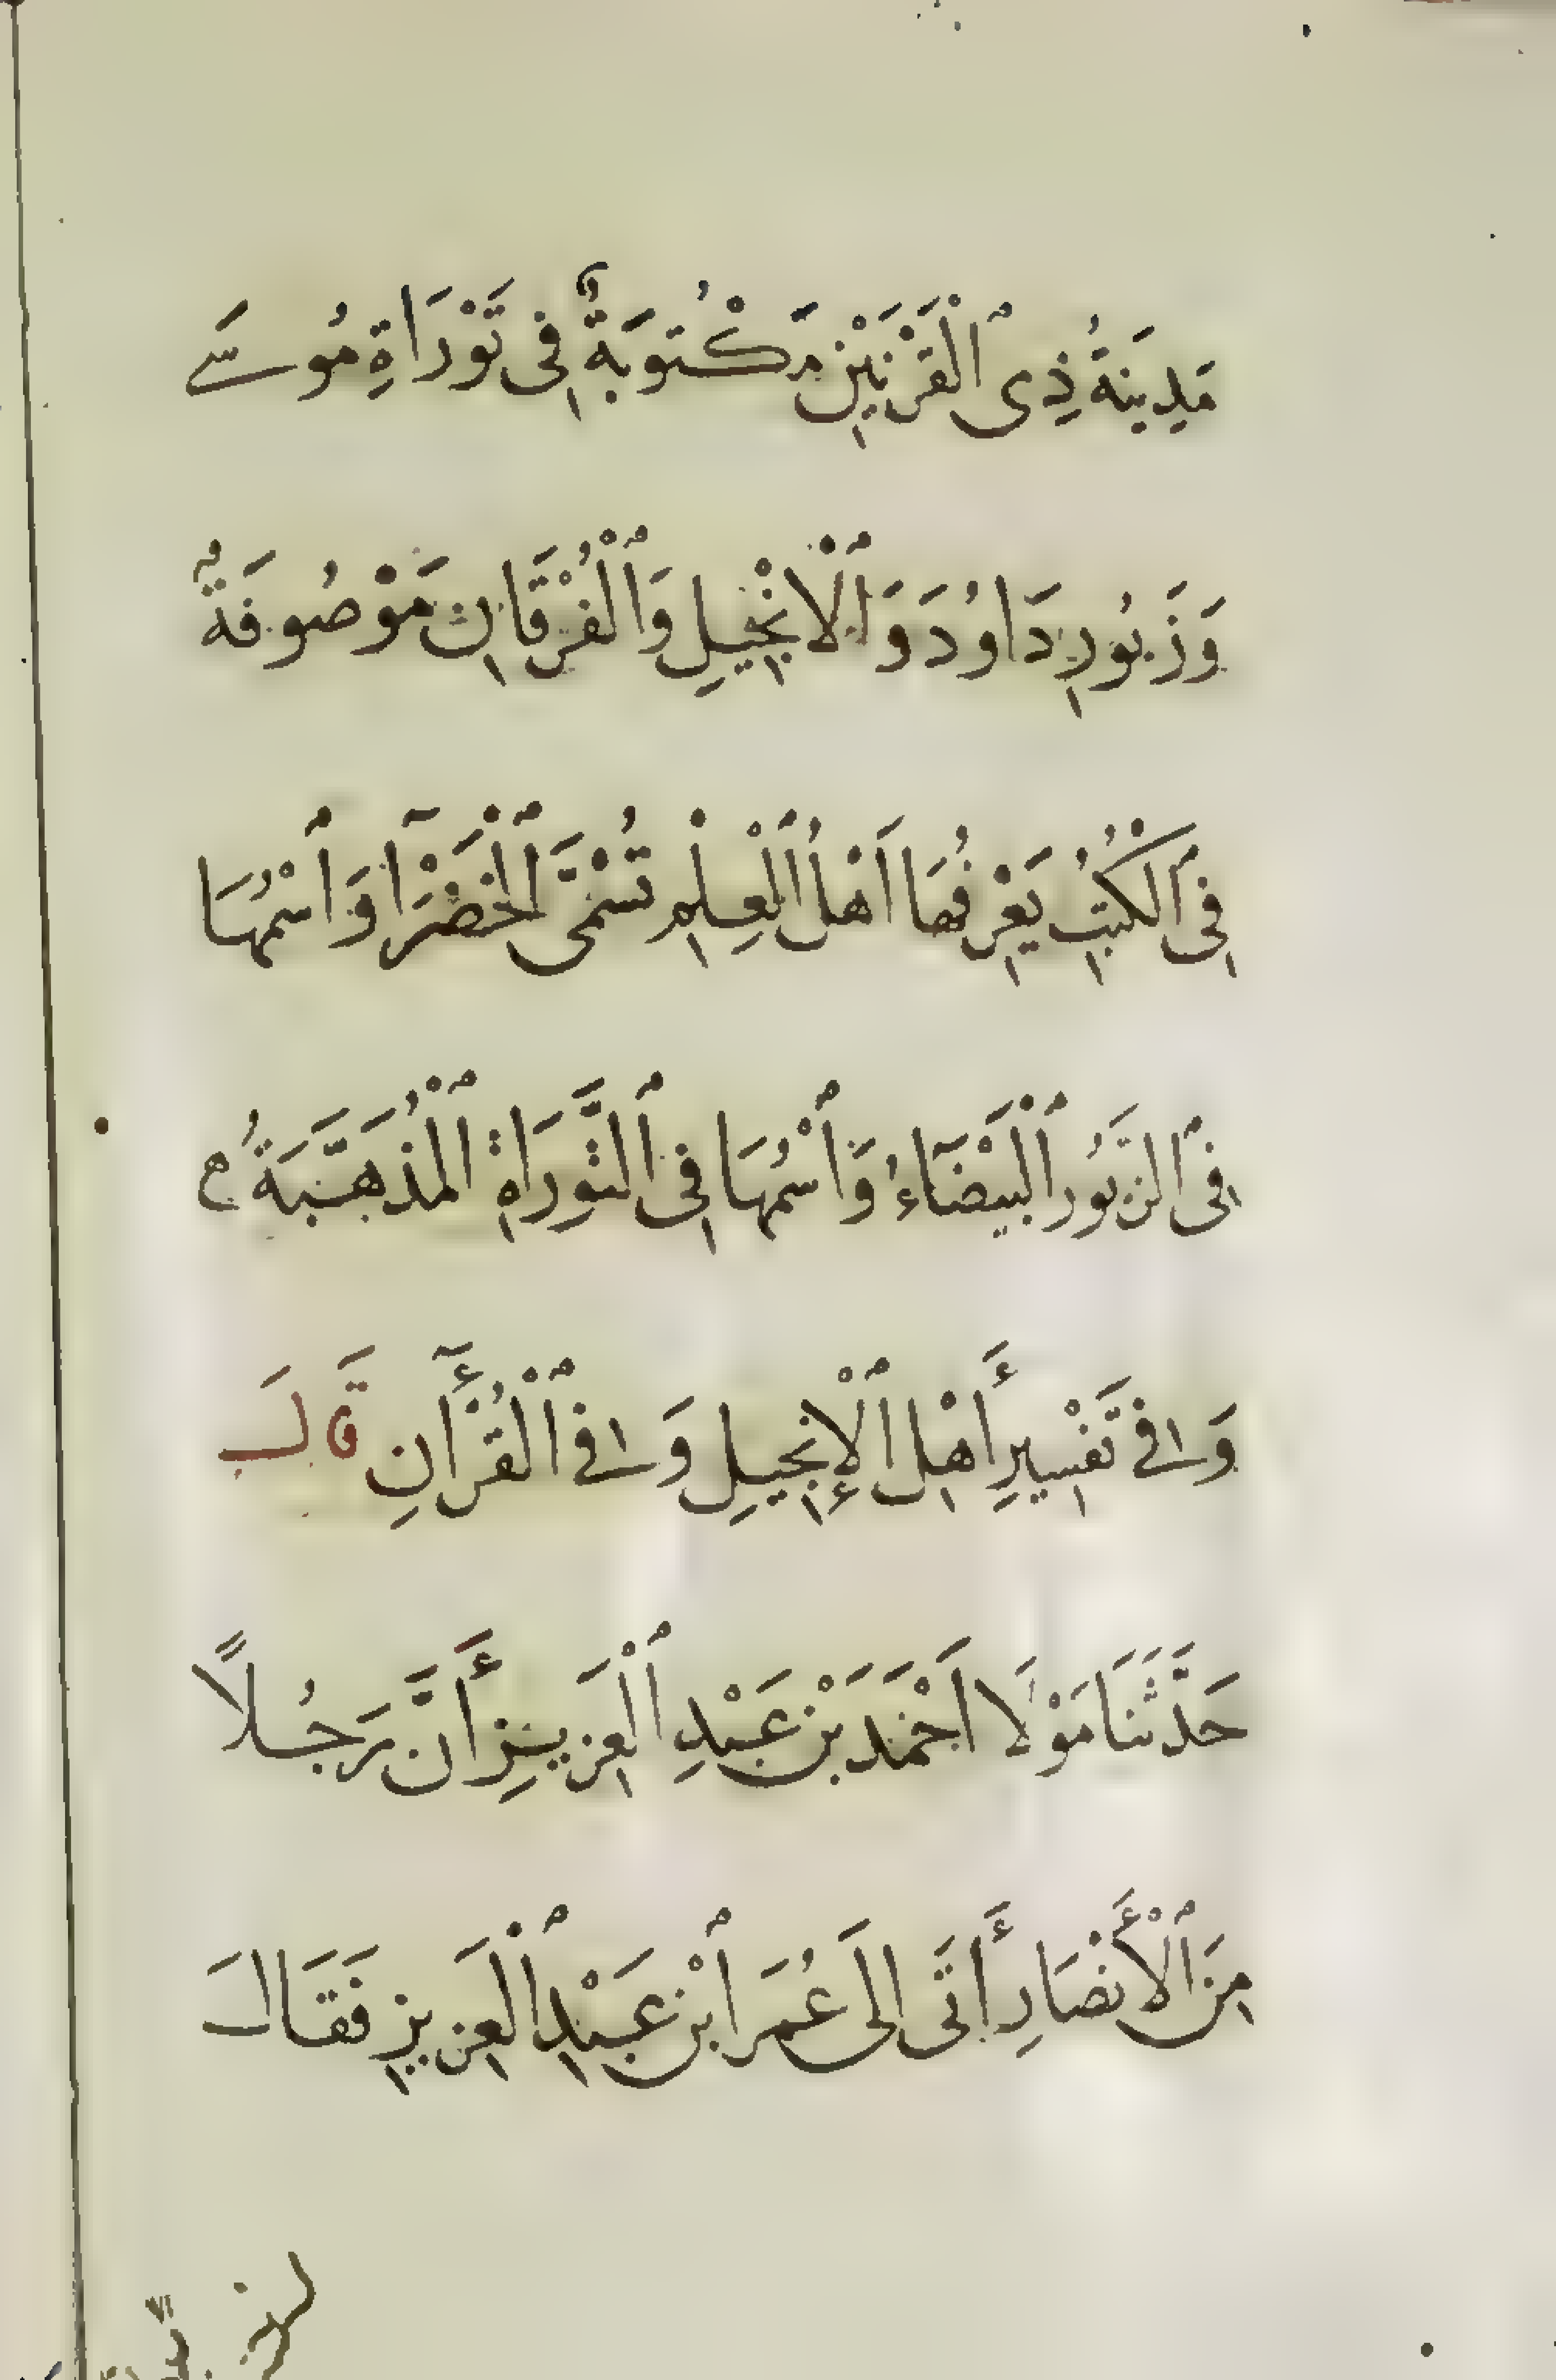 مَدِينَةُ ذِى ٱلْقَرْنَيْنِ مَّكْتُوبَةٌ فِى تَوْرَاةِ مُوسَے
وَزَبُورِ دَاوُدَ وَٱلْاِنْجِيلِ وَٱلْفُرْقَانِ مَوْصُوفَةٌ
فِى ٱلْكُتُبِ يَعْرِفُهَا اَهْلُ ٱلْعِلْمِ تُسَمَّى ٱلْخَضْرَآ وَٱسْمُهَا
فِى ٱلزَّبُورِ ٱلْبَيْضَآءُ وَٱسْمُهَا فِى ٱلتَّوْرَاةِ ٱلْمُذَهَّبَةُ ع
وَفِى تَفْسِيرِ أَهْلِ ٱلْإِنْجِيلِ وَفِى ٱلْقُرْأٓنِ قَالَ
حَدَّثَنَا مَوْلَا اَحْمَدَ بْنِ عَبْدِ ٱلْعَزِيزِ أَنَّ رَجُلًا
مِنَ ٱلْأَنْصَارِ أَتَى اِلَى عُمَرَ ٱبْنِ عَبْدِ ٱلْعَزِيزِ فَقَالَ